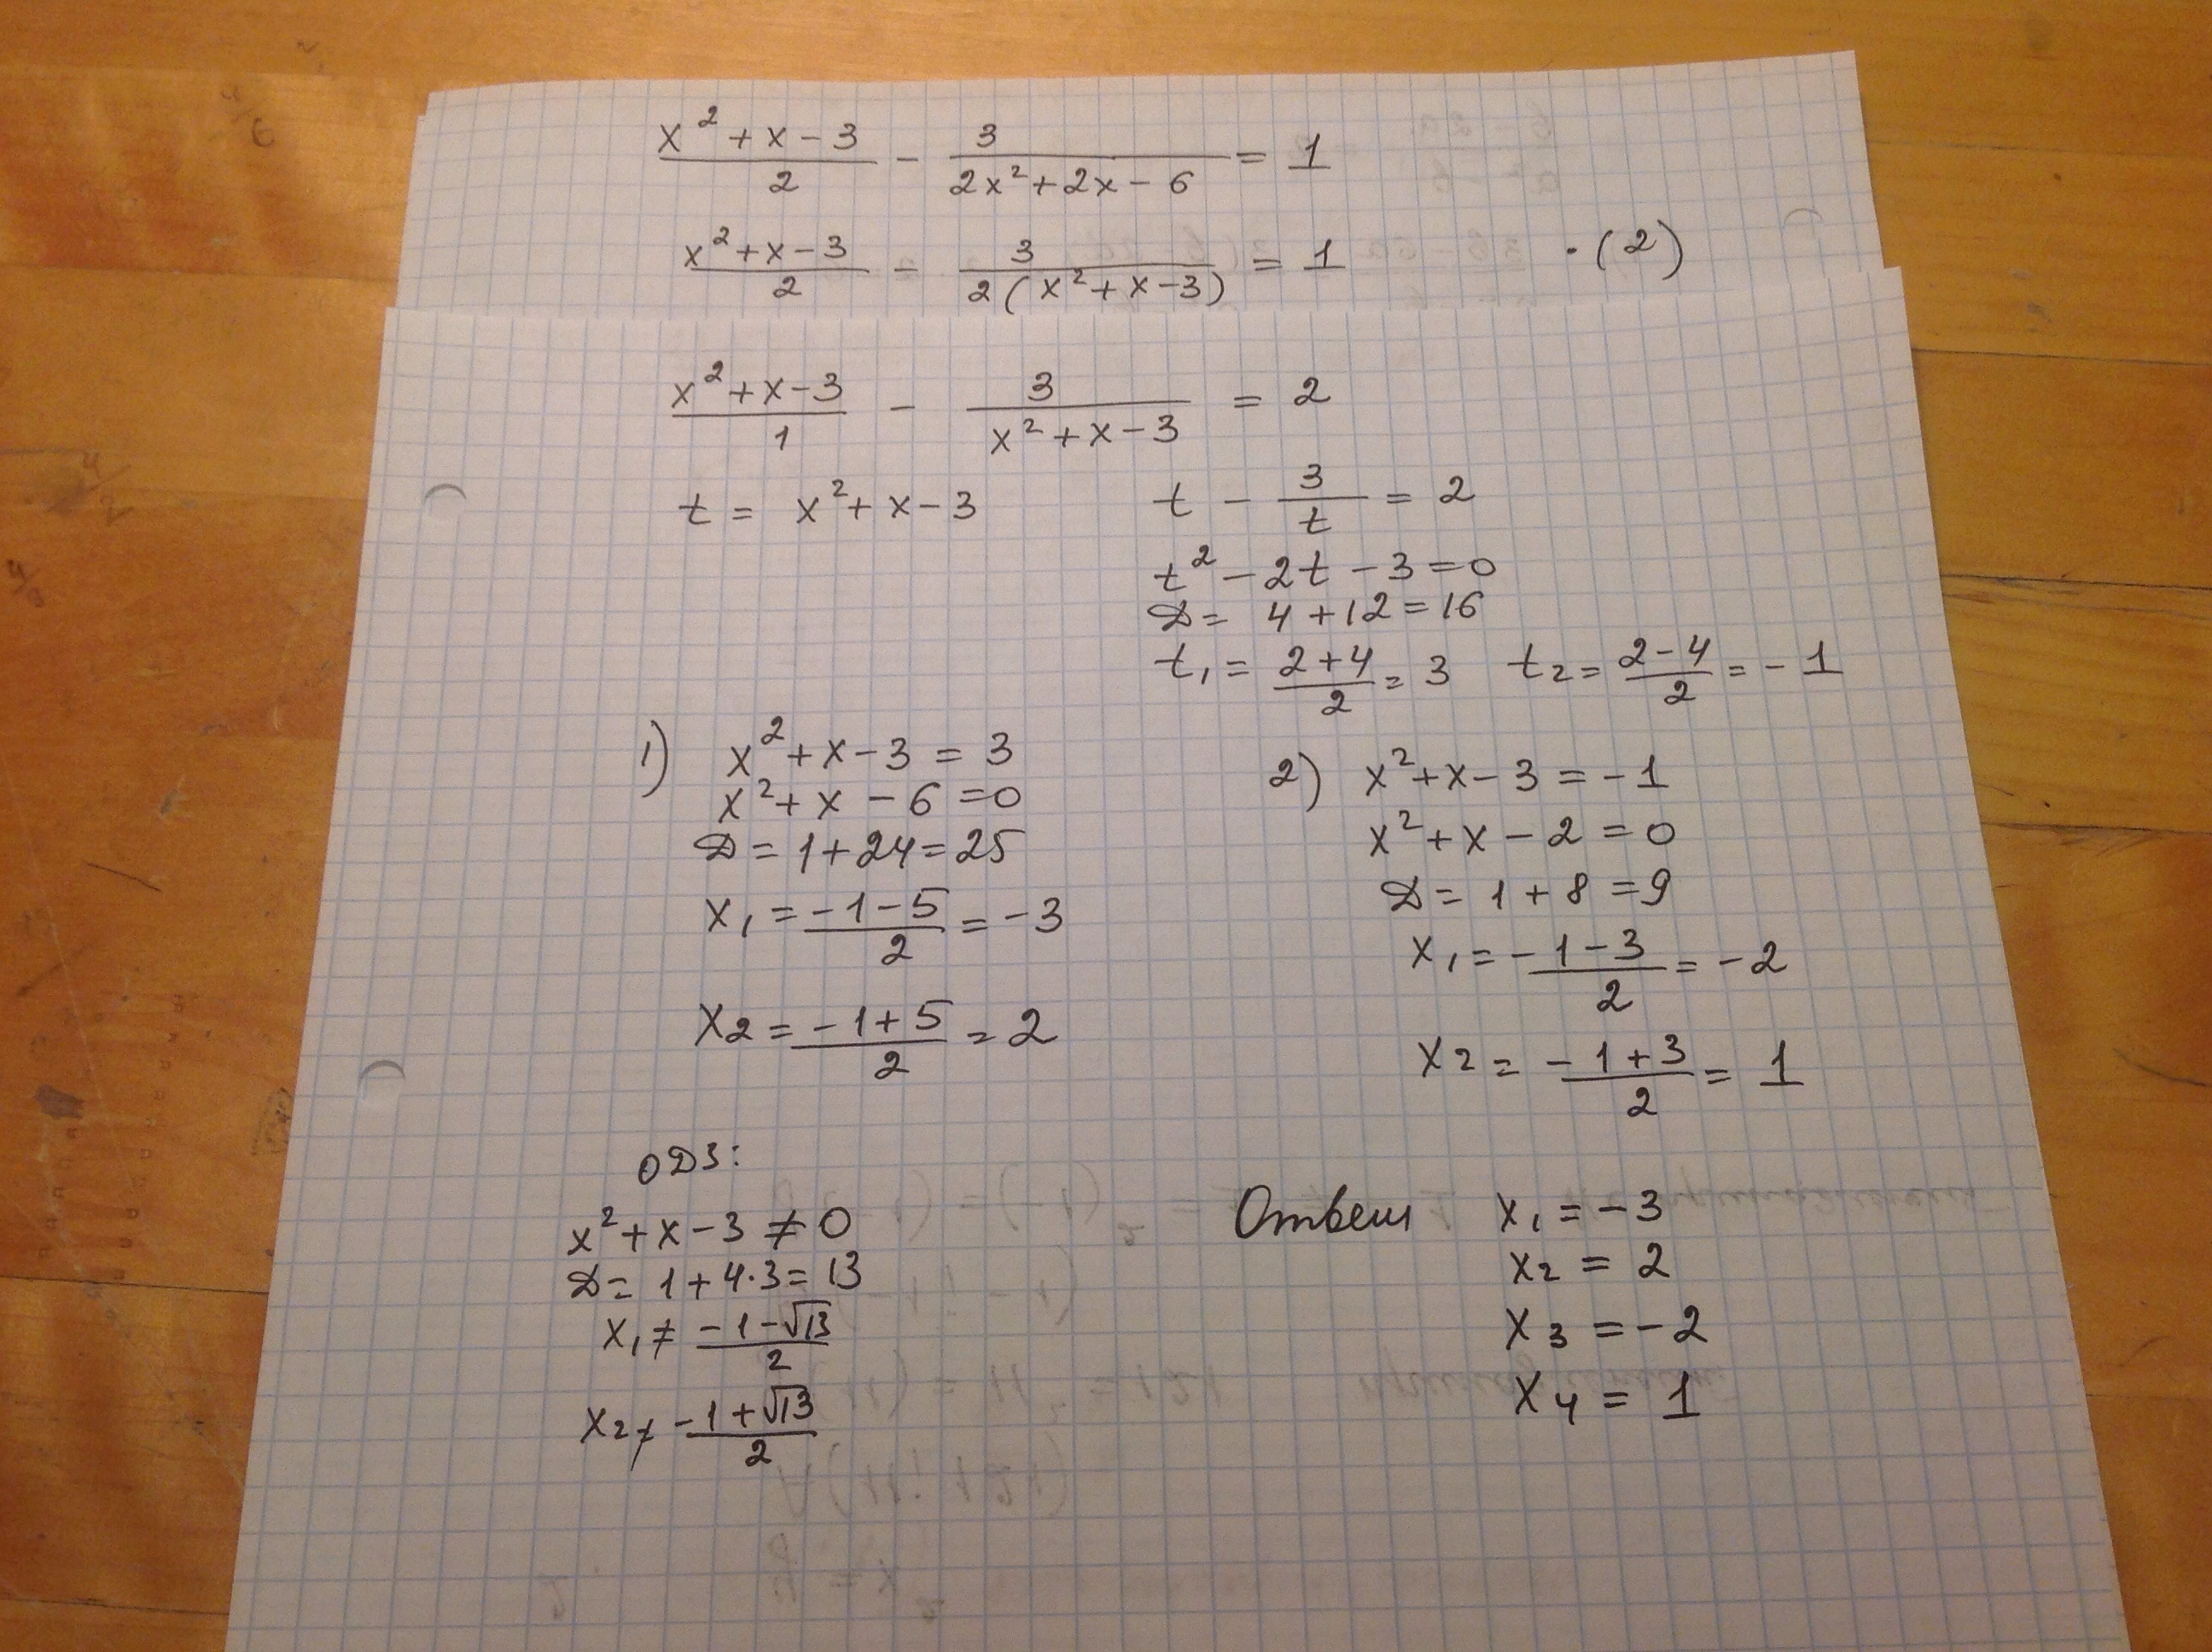 (x² + x - 3)/2 - 3/(2x² + 2x - 6) = 1
(x² + x - 3)/2 - 3/(2(x² + x - 3)) = 1 · (2)
(x² + x - 3)/1 - 3/(x² + x - 3) = 2
t = x² + x - 3
t - 3/t = 2
t² - 2t - 3 = 0
D = 4 + 12 = 16
t₁ = (2 + 4)/2 = 3 t₂ = (2 - 4)/2 = -1
1) x² + x - 3 = 3
x² + x - 6 = 0
D = 1 + 24 = 25
x₁ = (-1 - 5)/2 = -3
x₂ = (-1 + 5)/2 = 2
2) x² + x - 3 = -1
x² + x - 2 = 0
D = 1 + 8 = 9
x₁ = (-1 - 3)/2 = -2
x₂ = (-1 + 3)/2 = 1
ОДЗ:
x² + x - 3 ≠ 0
D = 1 + 4·3 = 13
x₁ ≠ (-1 - √13)/2
x₂ ≠ (-1 + √13)/2
Ответ x₁ = -3
x₂ = 2
x₃ = -2
x₄ = 1